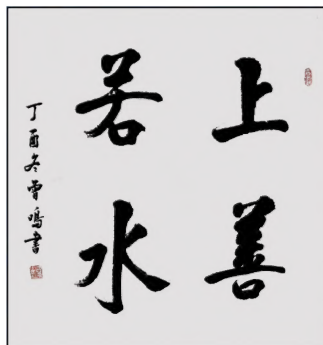 上善
若水
丁酉冬雪鳴書